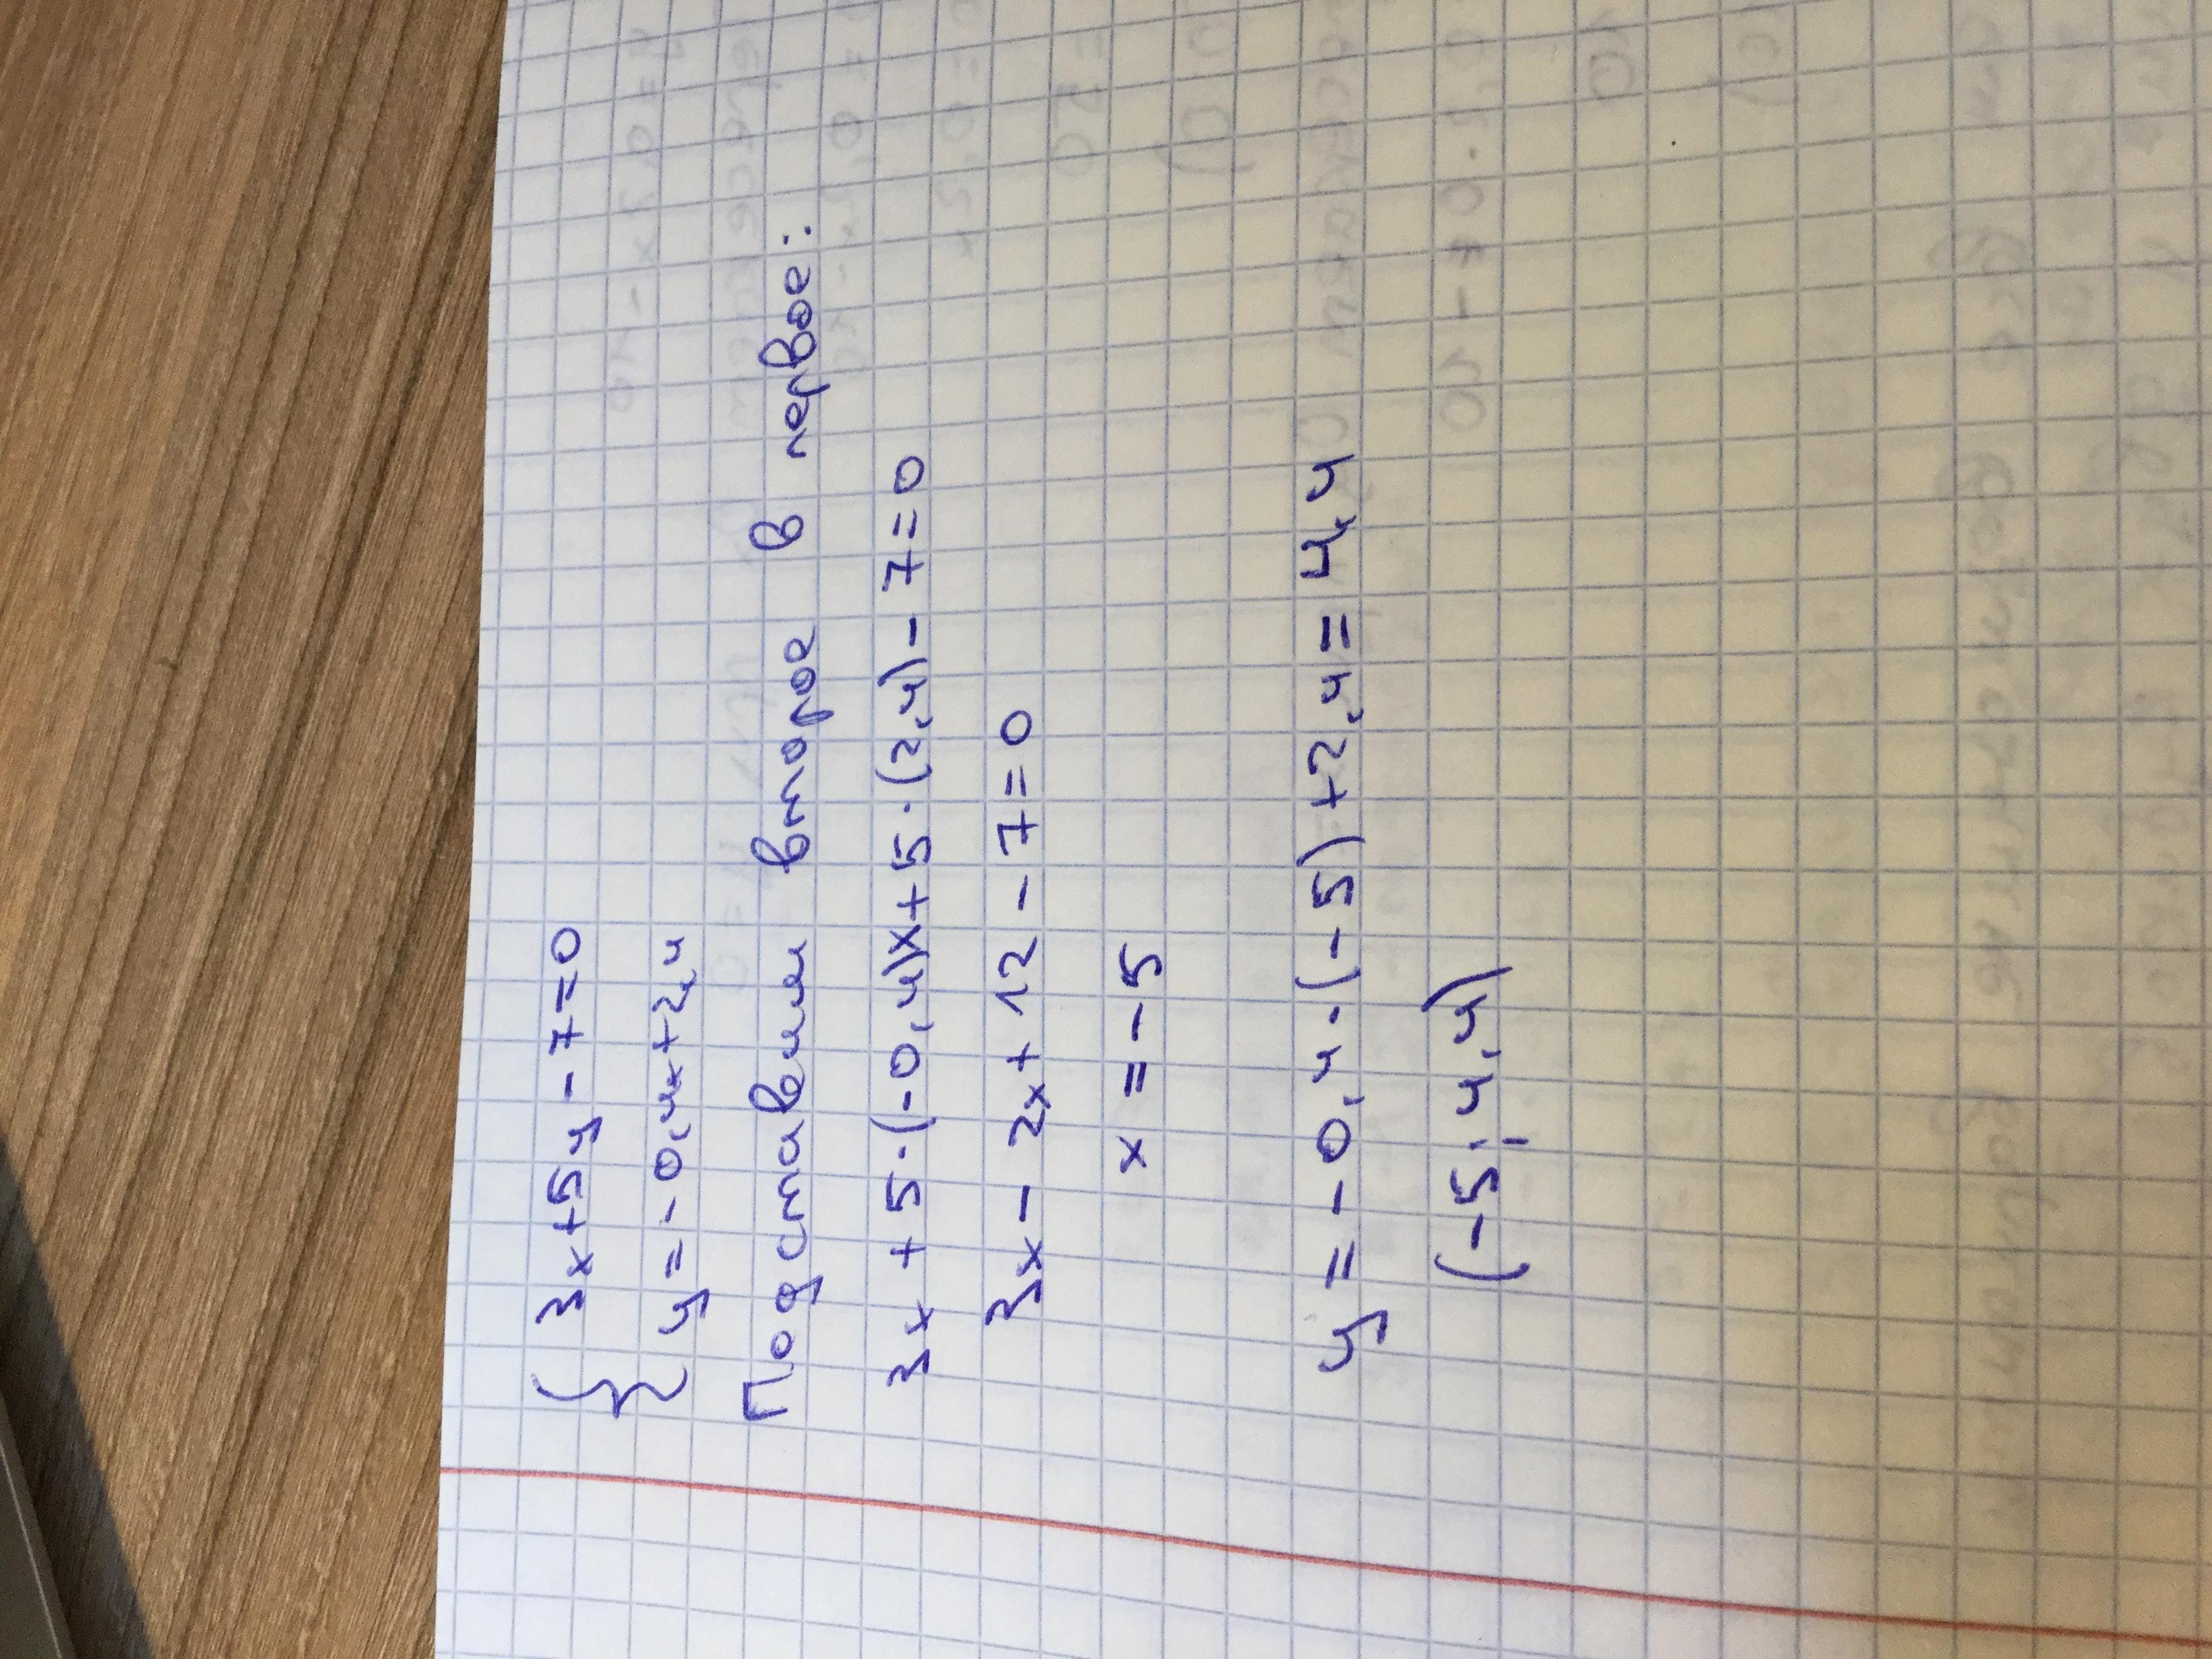 { 3x+5y-7=0
y=-0,4x+2,4
Подставим второе в первое:
3x+5·(-0,4)x+5·(2,4)-7=0
3x-2x+12-7=0
x=-5
y=-0,4·(-5)+2,4=4,4
(-5;4,4)